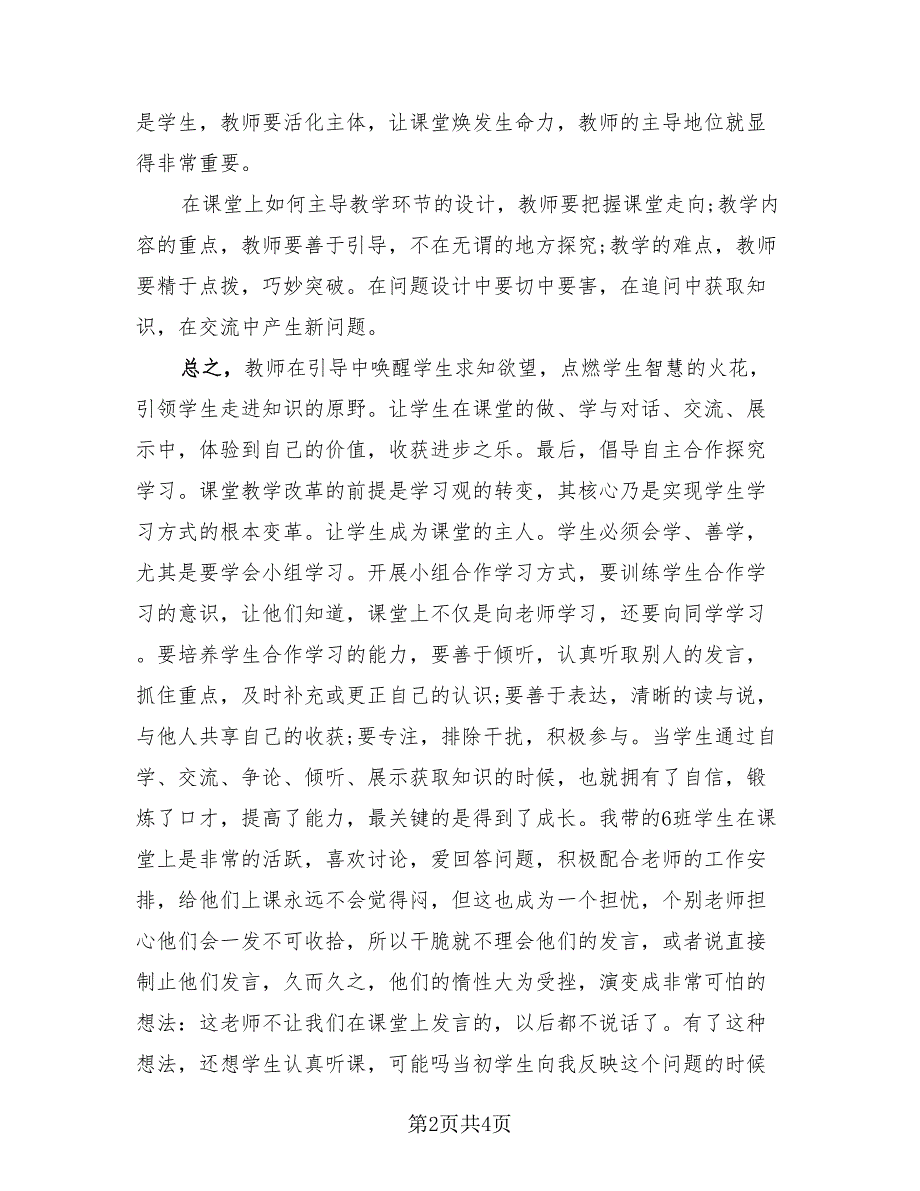 是学生，教师要活化主体，让课堂焕发生命力，教师的主导地位就显
得非常重要。
在课堂上如何主导教学环节的设计，教师要把握课堂走向;教学内
容的重点，教师要善于引导，不在无谓的地方探究;教学的难点，教师
要精于点拨，巧妙突破。在问题设计中要切中要害，在追问中获取知
识，在交流中产生新问题。
总之，教师在引导中唤醒学生求知欲望，点燃学生智慧的火花，
引领学生走进知识的原野。让学生在课堂的做、学与对话、交流、展
示中，体验到自己的价值，收获进步之乐。最后，倡导自主合作探究
学习。课堂教学改革的前提是学习观的转变，其核心乃是实现学生学
习方式的根本变革。让学生成为课堂的主人。学生必须会学、善学，
尤其是要学会小组学习。开展小组合作学习方式，要训练学生合作学
习的意识，让他们知道，课堂上不仅是向老师学习，还要向同学学习
。要培养学生合作学习的能力，要善于倾听，认真听取别人的发言，
抓住重点，及时补充或更正自己的认识;要善于表达，清晰的读与说，
与他人共享自己的收获;要专注，排除干扰，积极参与。当学生通过自
学、交流、争论、倾听、展示获取知识的时候，也就拥有了自信，锻
炼了口才，提高了能力，最关键的是得到了成长。我带的6班学生在课
堂上是非常的活跃，喜欢讨论，爱回答问题，积极配合老师的工作安
排，给他们上课永远不会觉得闷，但这也成为一个担忧，个别老师担
心他们会一发不可收拾，所以干脆就不理会他们的发言，或者说直接
制止他们发言，久而久之，他们的惰性大为受挫，演变成非常可怕的
想法：这老师不让我们在课堂上发言的，以后都不说话了。有了这种
想法，还想学生认真听课，可能吗当初学生向我反映这个问题的时候
第2页共4页